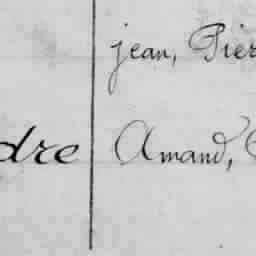 jean, Pier
dre Amand,